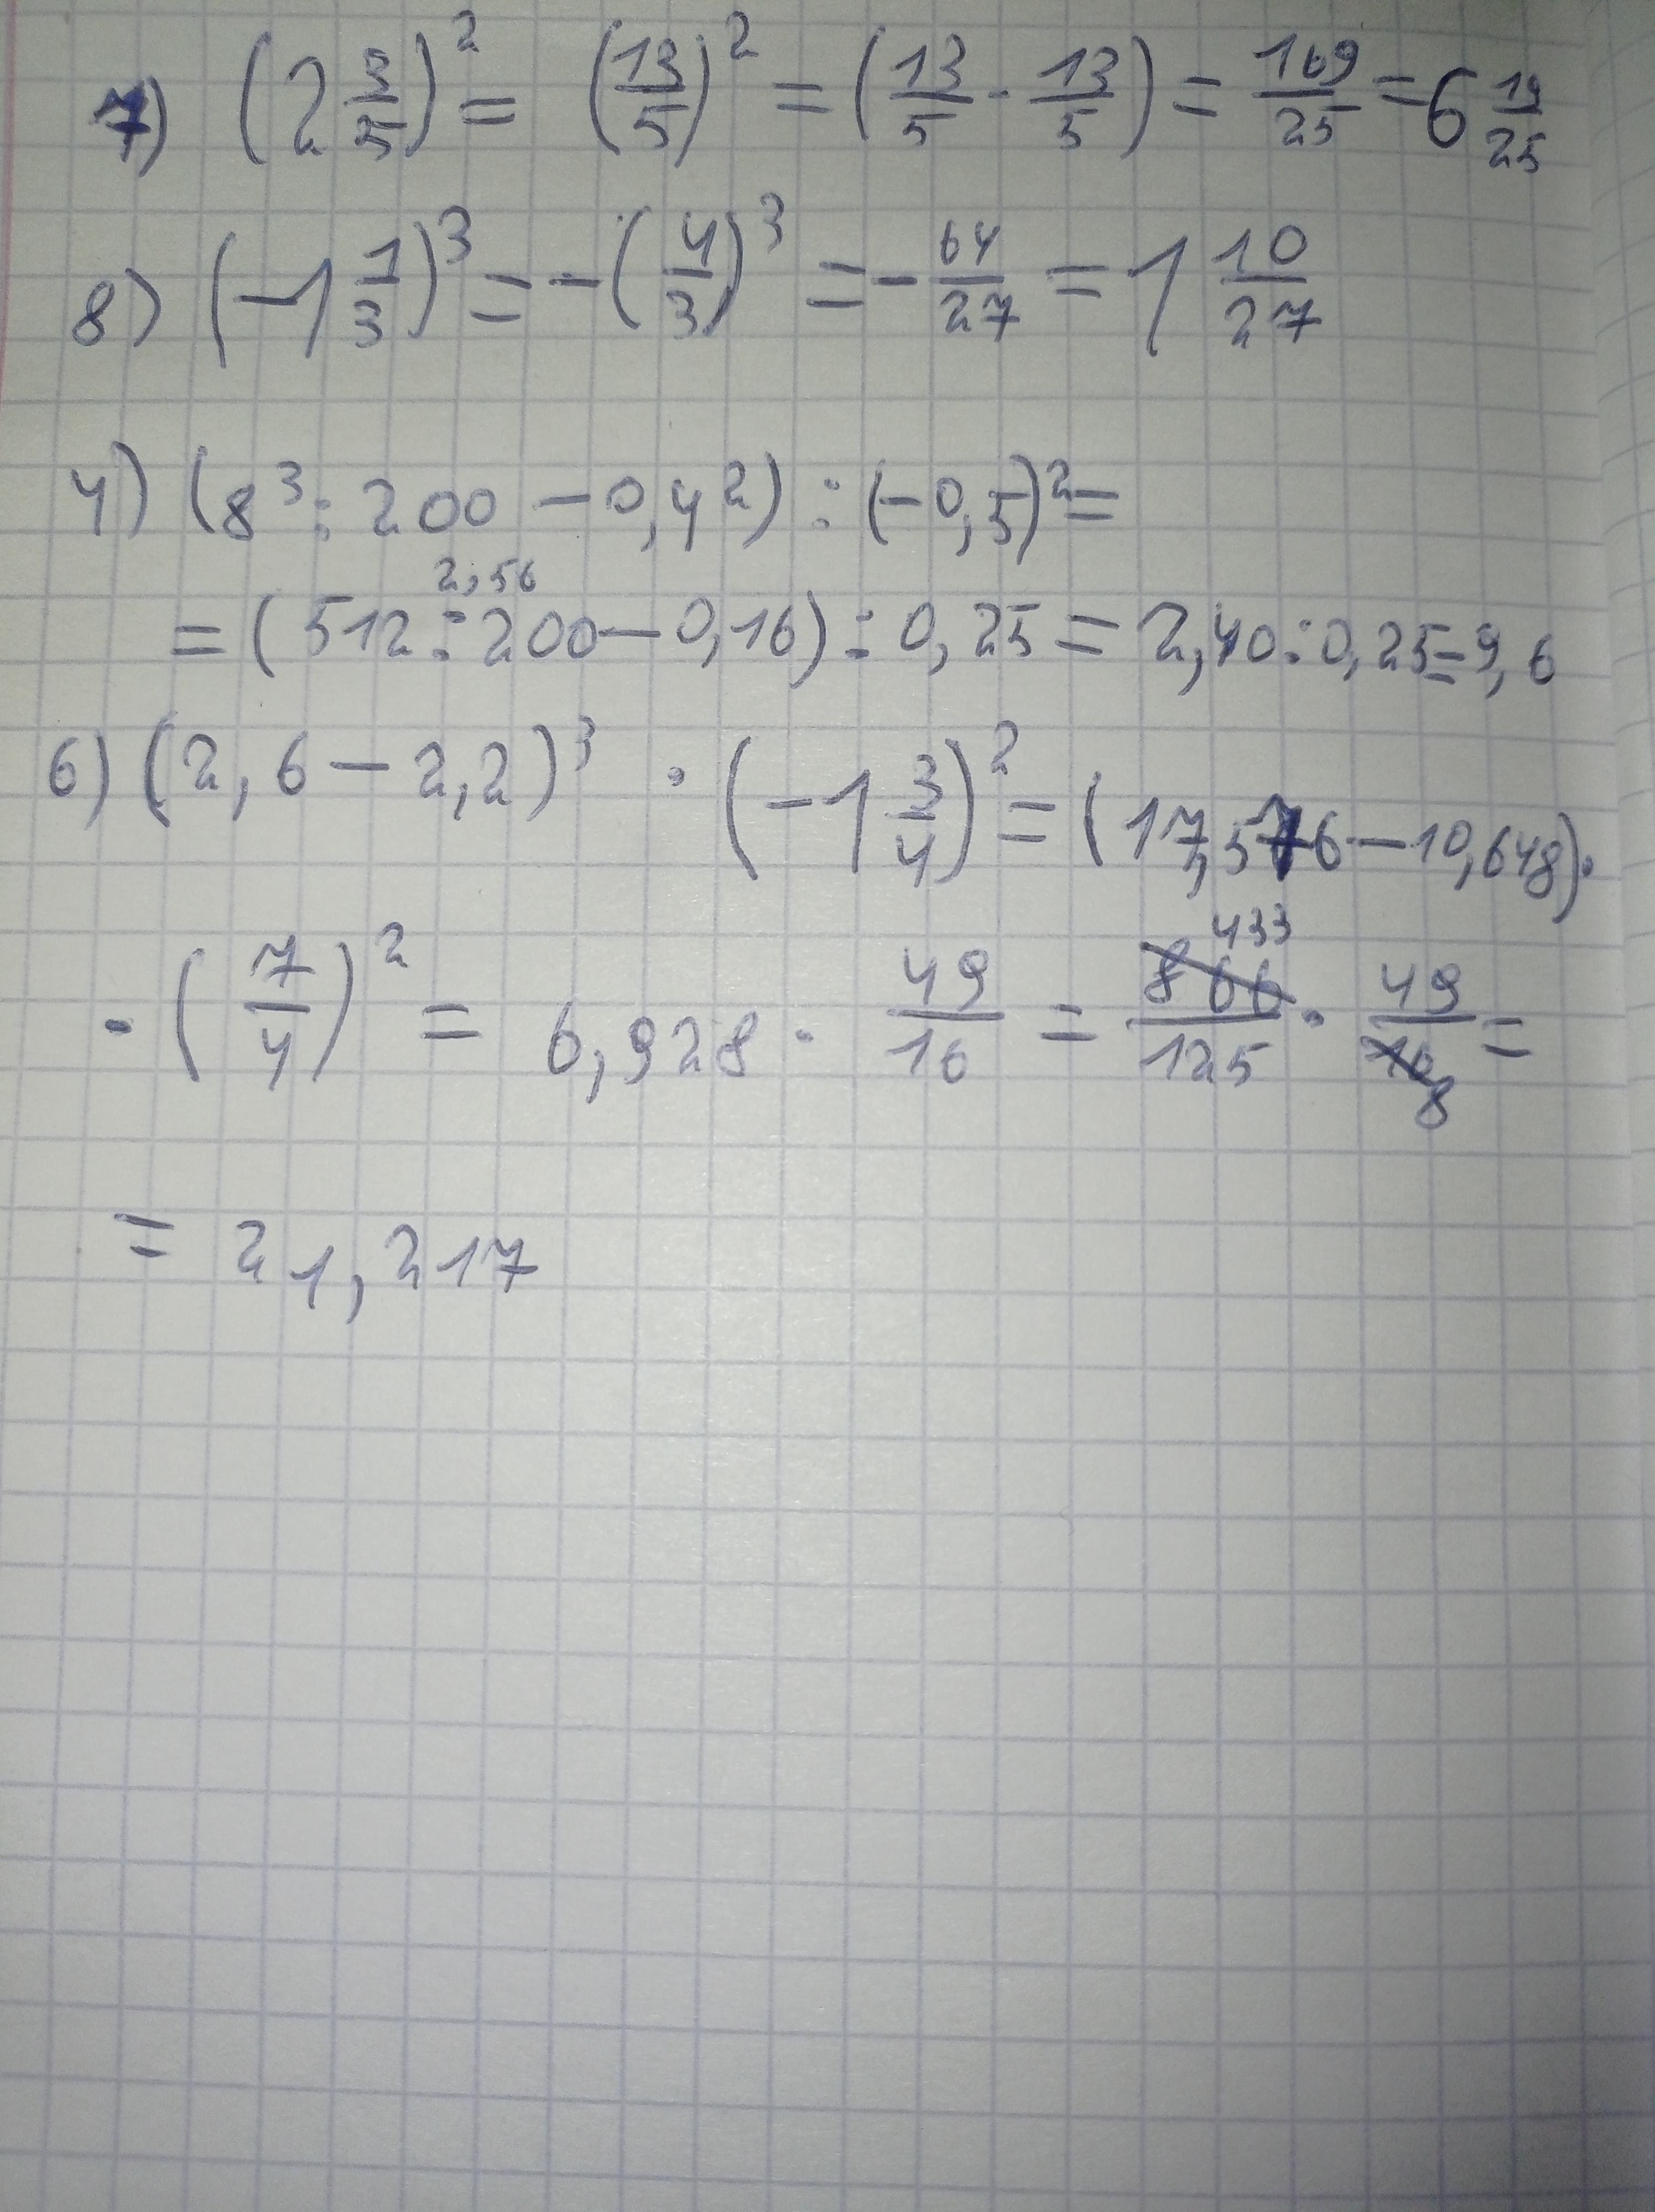 7) (2 3/5)² = (13/5)² = (13/5 · 13/5) = 169/25 = 6 19/25
8) (-1 1/3)³ = -(4/3)³ = - 64/27 = 1 10/27
4) (8³ : 200 - 0,4²) : (-0,5)² =
2,56
= (512 : 200 - 0,16) : 0,25 = 2,40 : 0,25 = 9,6
6) (2,6 - 2,2)³ · (-1 3/4)² = (17,576 - 10,648) ·
433
· (7/4)² = 6,928 · 49/16 = 866/125 · 49/16 =
8
= 21,217